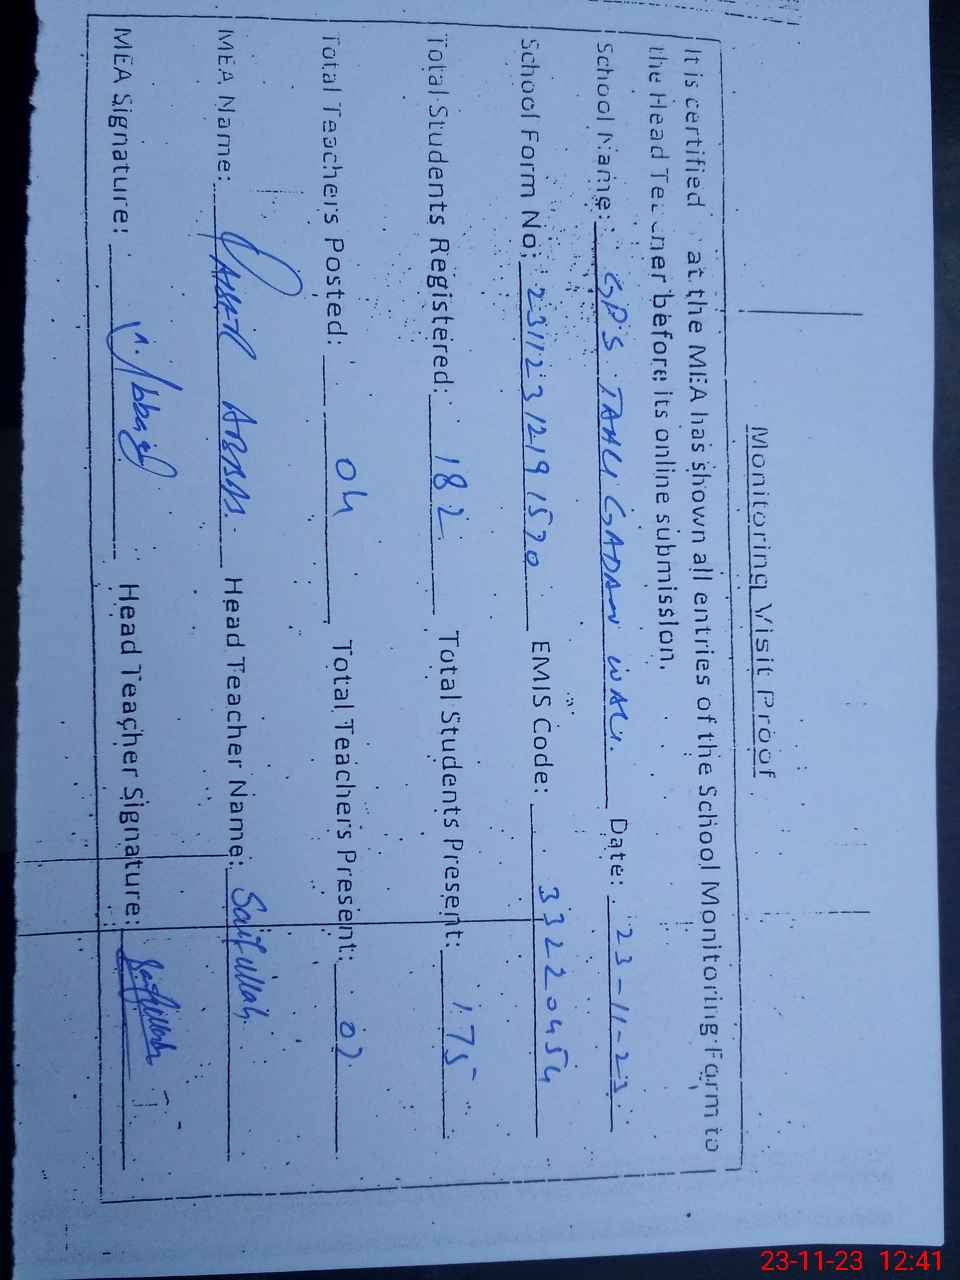 Monitoring Visit Proof
It is certified at the MEA has shown all entries of the School Monitoring Farm to
the Head Teacher before its online submission.
School Name: GPS TAHLI GADAN WALI. Date: 23-11-23
School Form No: 23112312191570 EMIS Code: 33220454
Total Students Registered: 182 Total Students Present: 175
Total Teachers Posted: 04 Total Teachers Present: 02
MEA Name: ABBAS. Head Teacher Name: Saifullah
MEA Signature: Head Teacher Signature: Saifullah
23-11-23 12:41